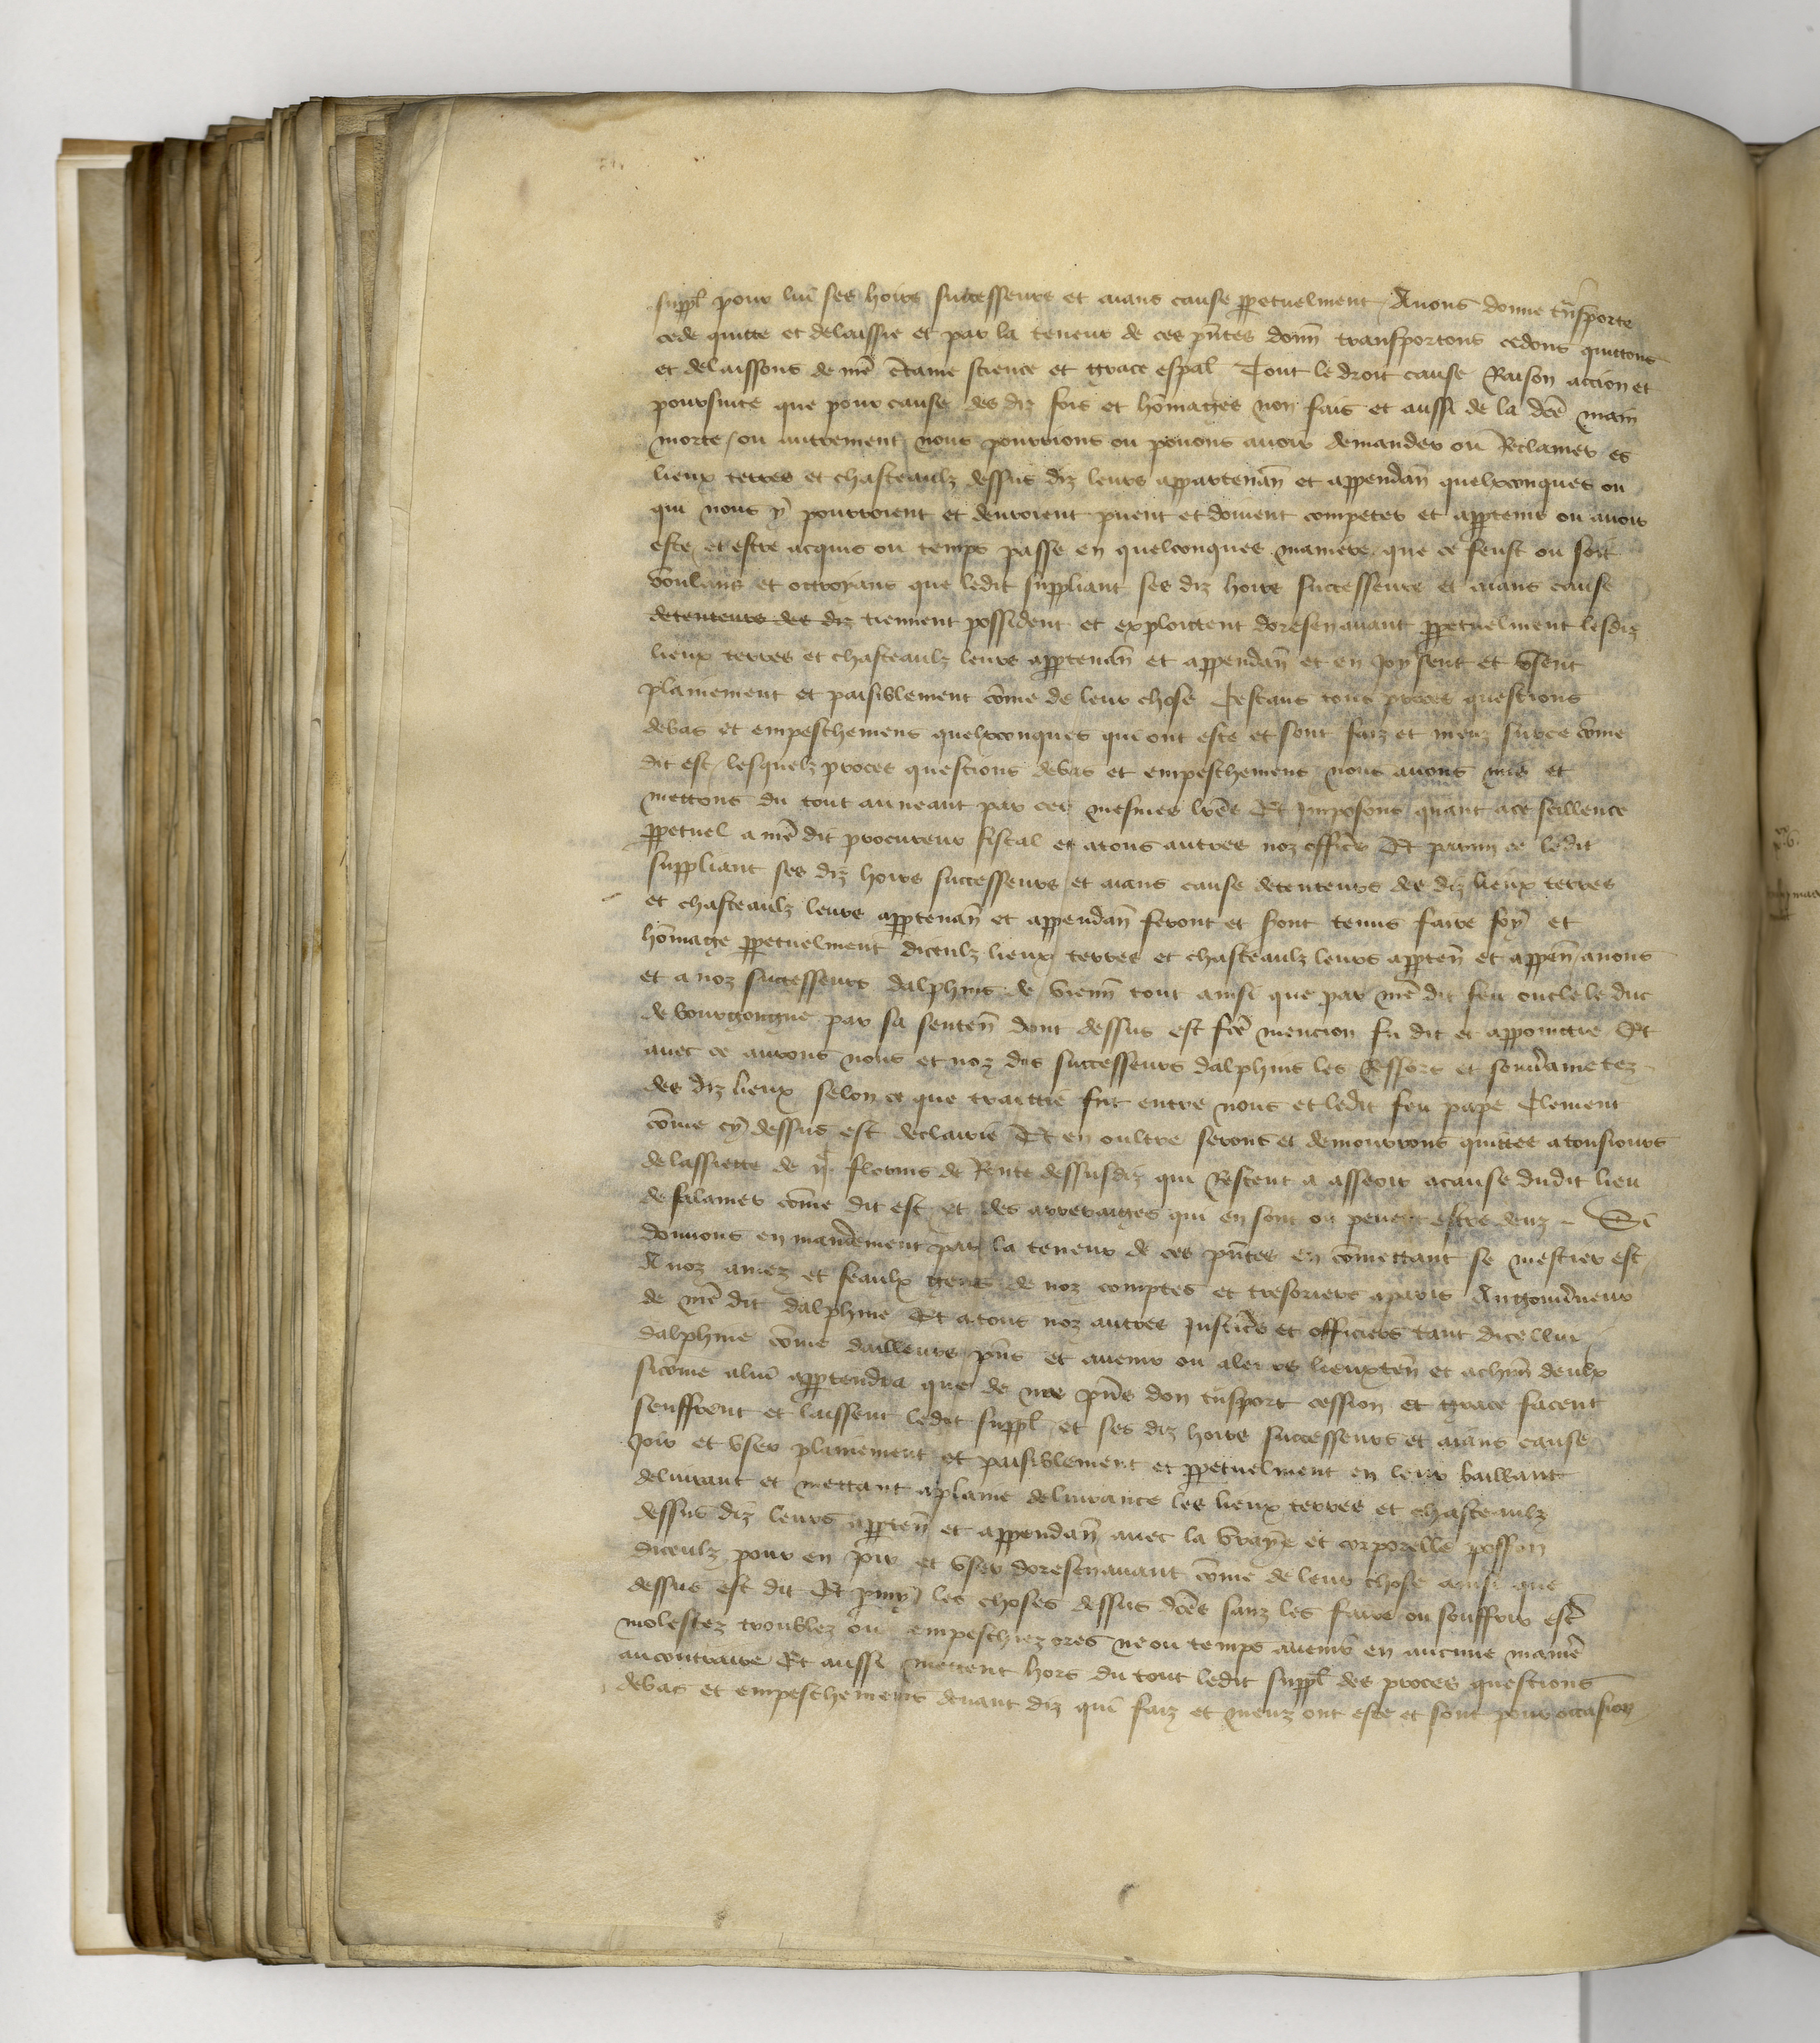 suppl pour lui ses hoirs successeurs et aians cause ppetuelment Auons donne tnsporte
cede quitte et delaissie et par la teneur de ces pntes donn transportons cedons quittons
et delaissons de nre ctaine science et grace espal Tout le droit cause Raison accion et
poursuite que pour cause des diz fois et hommages non fais et aussi de la dce main
morte / ou autrement nous pourrions ou pouons auoir demander ou Reclamer es
lieux terres et chasteaulx dessus diz leurs appartenan et appendan quelxconques ou
qui nous y pourroient et deuroient puent et doiuent competer et apptenir ou auoir
este et estre acquis ou temps passe en quelconques maniere que ce feust ou soit
voulans et octroyans que ledit suppliant ses diz hoirs successeurs et aians cause
detenteurs des diz tiennent possident et exploittent doresenauant ppetuelment lesdiz
lieux terres et chasteaulz leurs apptenan et appendan et en Joyssent et vsent
plainement et paisiblement come de leur chose Cessans tous proces questions
debas et empeschemens quelxconques qui ont este et sont faiz et meuz surce come
dit est / lesquelz proces questions debas et empeschemens nous auons mis et
mettons du tout au neant par ces mesmes lres Et Imposons quant ace scillence
ppetuel a nre dit procureur fiscal et atous autres noz officrs Et parmi ce ledit
suppliant ses diz hoirs successeurs et aians cause detenteurs des diz lieux terres
et chasteaulz leurs apptenan et appendan feront et sont tenus faire foy et
homage ppetuelment diceulz lieux terres et chasteaulz leurs appten et appen / anous
et a noz successeurs dalphins de vienn tout ainsi que par nre dit feu oncle le duc
de bourgongne par sa senten dont dessus est fce mencion fu dit et appoinctie Et
auec ce aurons nous et noz dis successeurs dalphins les Ressors et souuainetez
des diz lieux selon ce que traittie fut entre nous et ledit feu pape Clement
come cy dessus est declairie Et en oultre serons et demourrons quittes atousiours
delassiette de florins de Rente dessusdiz qui Restent a asseoir acause dudit lieu
de falamer come dit est et des arrerages qui en sont ou peuent estre deuz ~ Si
donnons en mandement par la teneur de ces pntes en comettant se mestier est
A noz amez et feaulx gens de noz comptes et tresoriers aparis Augouuneur
de nre dit dalphine Et atous noz autres Justicrs et officiers tant dicellui
dalphine come dailleurs pns et auenir ou aleurs lieuxten et achun deulx
sicome alui apptendra que de nre pnte don tnsport cession et grace facent
seuffrent et laissent ledit suppl et ses diz hoirs successeurs et aians cause
Joir et vser plainement et paisiblement et ppetuelment en leur baillant
deliurant et mettant aplaine deliurance les lieux terres et chasteaulz
dessus diz leurs appten et appendan auec la vraye et corporelle posson
diceulz pour en joir et vser doresenauant come de leur chose ainsi que
dessus est dit Et pmy les choses dessus dces sanz les faire ou souffrir estre
molestez troublez ou empeschiez ores ne ou temps auenir en aucune manre
aucontraire Et aussi mettent hors du tout ledit suppl des proces questions
debas et empeschemens deuant diz qui faiz et meuz ont este et sont pour occasion